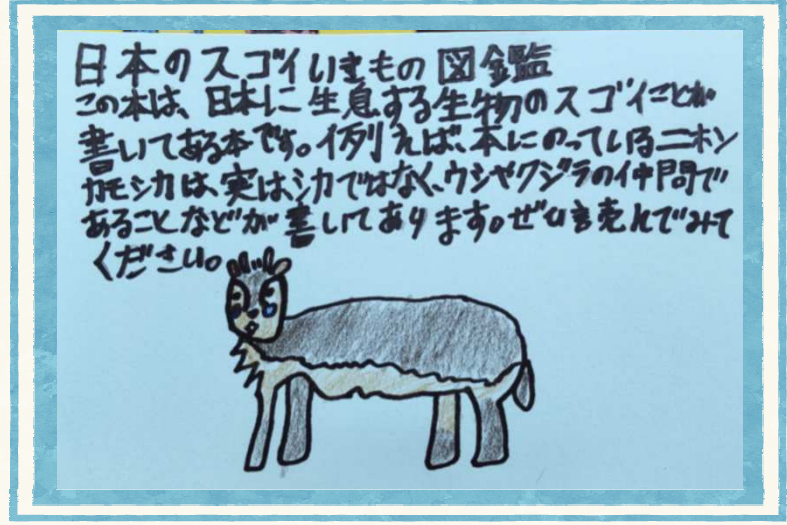 日本のスゴイいきもの図鑑
この本は、日本に生息する生物のスゴイことが
書いてある本です。例えば、本にのっているニホン
カモシカは、実はシカではなく、ウシやクジラの仲間で
あることなどが書いてあります。ぜひ読んでみて
ください。